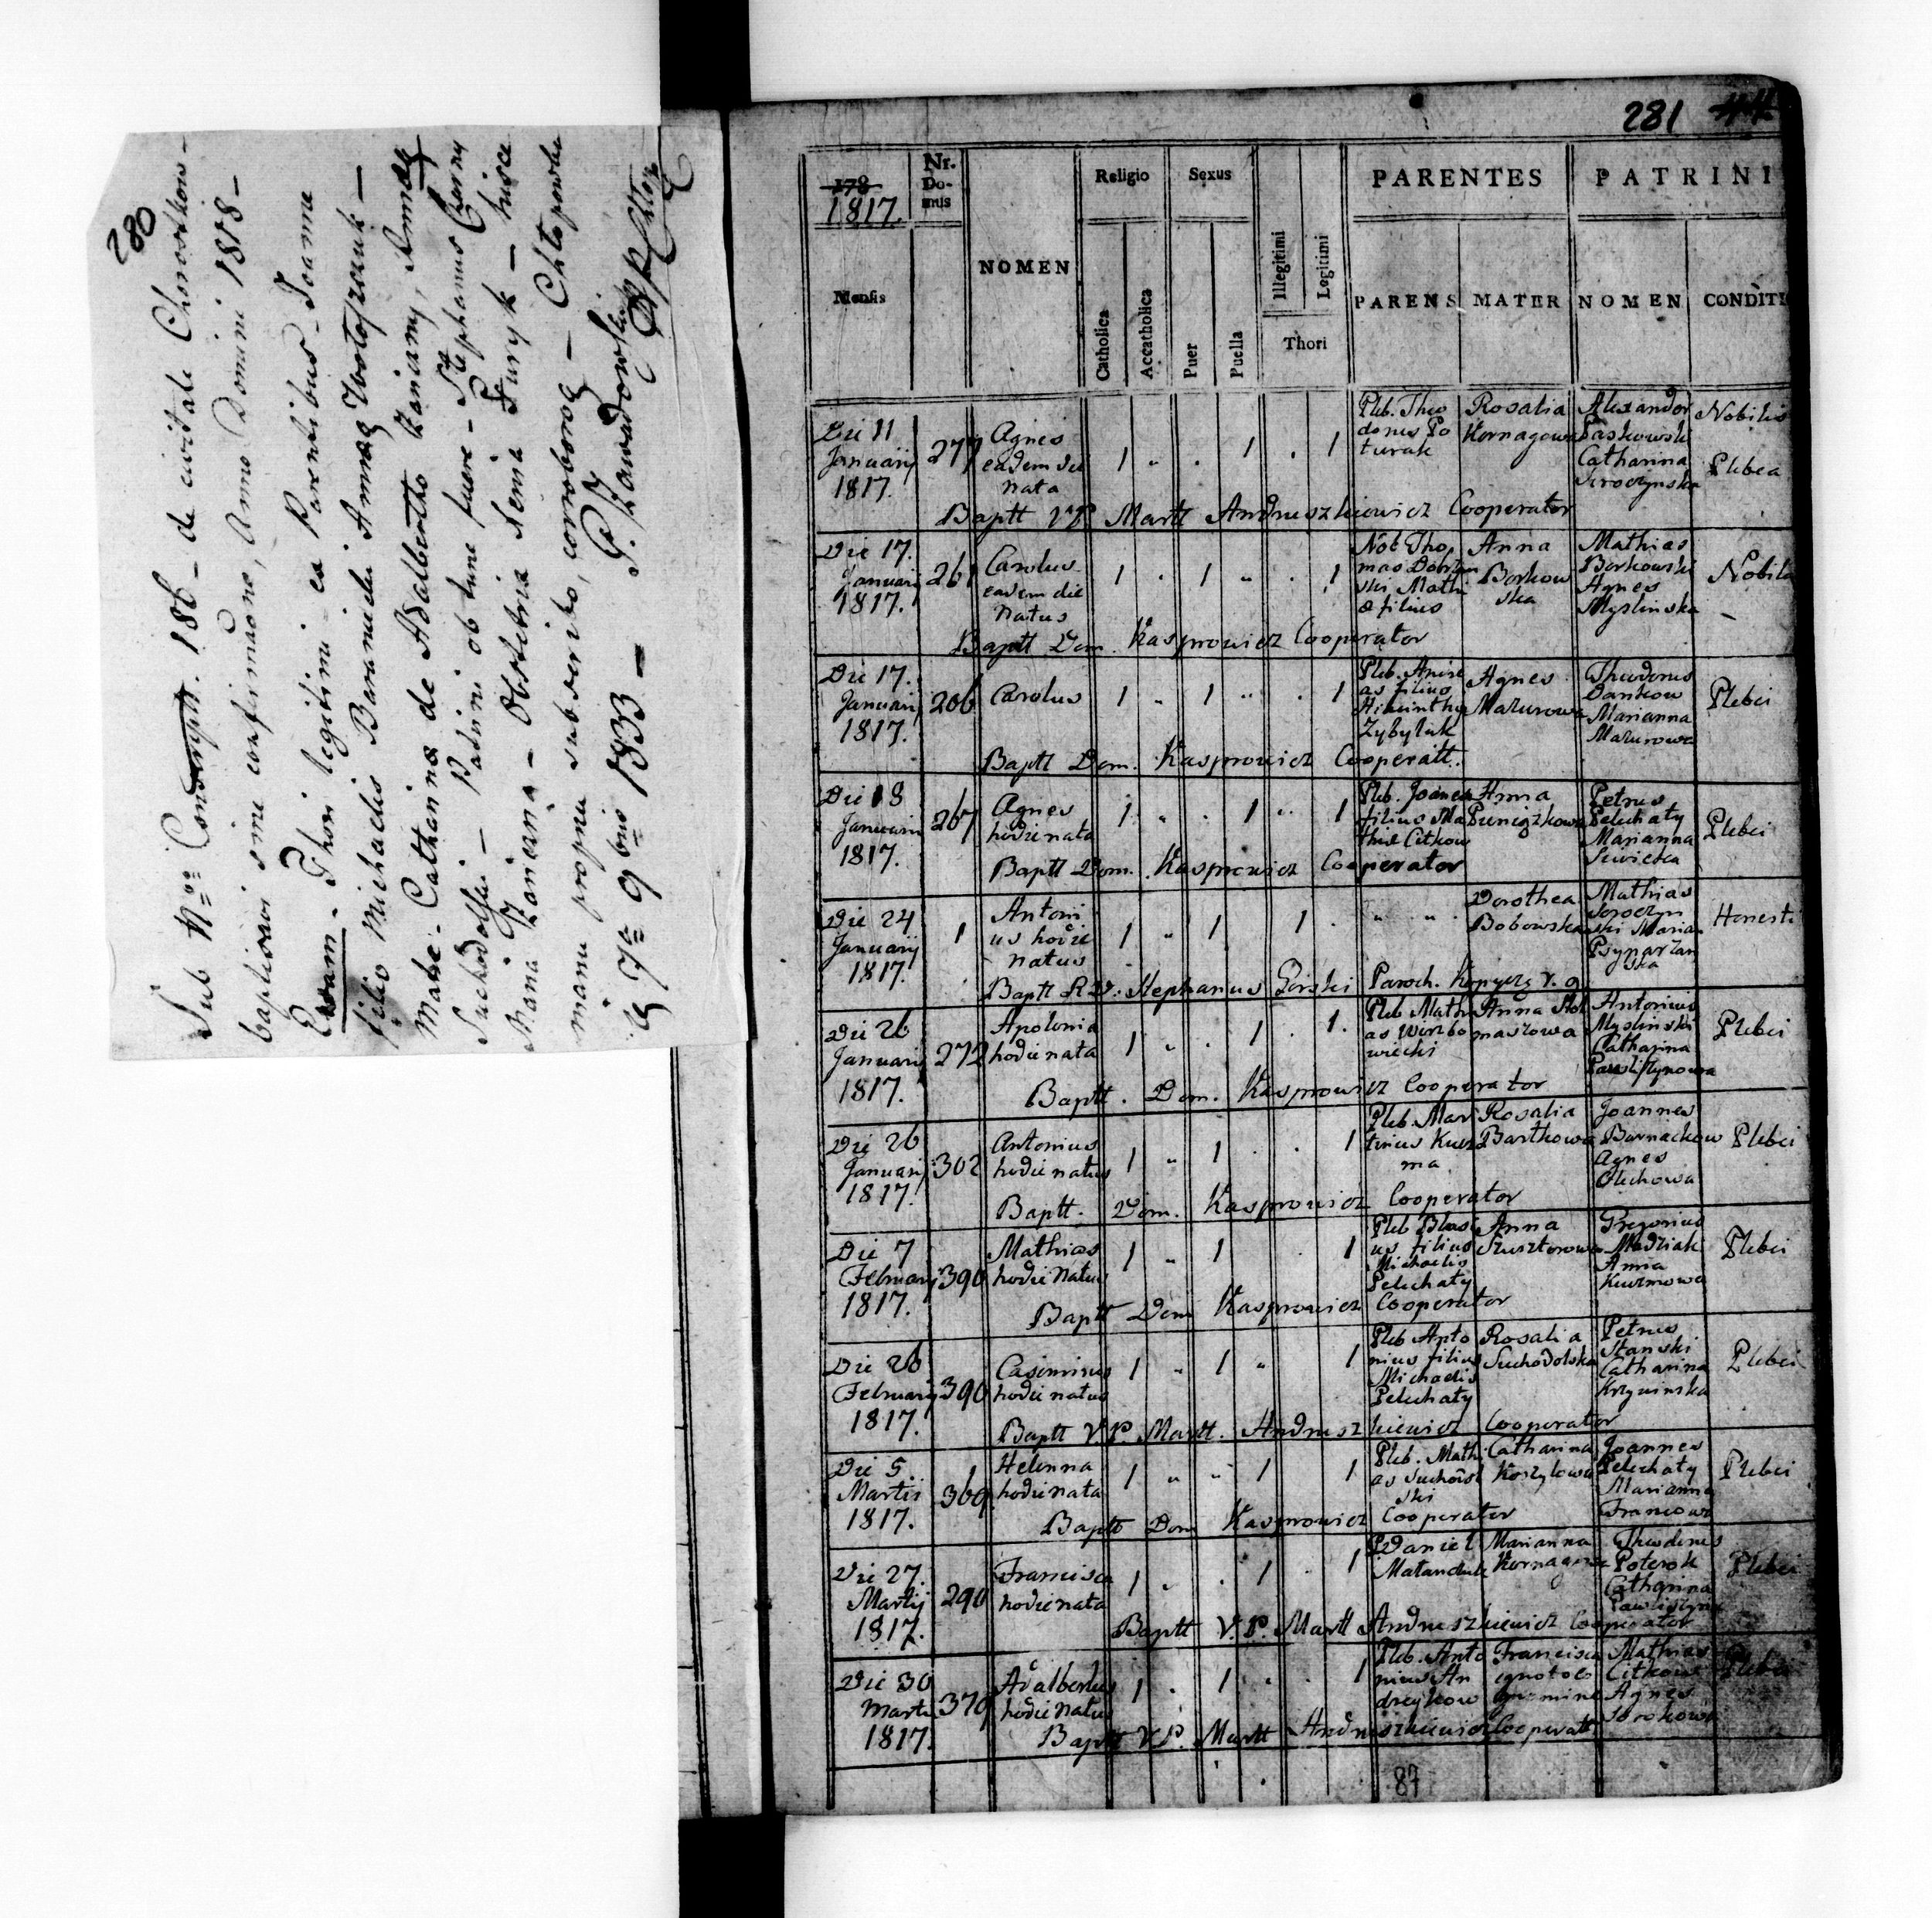 280
Sub Nroi Conscript. 186 – de civitate Chorostkow –
baptisavi sine confirmao͠ne, Anno Domini 1818 –
Evam – Thori legitimi – ex Parentibus – Joanne
filio Michaelis Baraniecki Annaq
Matre – Catharina de Adalbertho Laniany, Annaq
Suchodolski – Patrini ob hunc fuere – Stephanus Czerny
Maria – Obstetria Xenia Furyk – hisce
manu propria subscribo, corroboroq –
17a 9bris 1833 –
281
178
1817.
Nr. Do- mus
Mensis
NOMEN
Religio
Catholica
Accatholica
Sexus
Puer
Puella
Illegitimi
Legitimi
Thori
PARENTES
PARENS
MATER
PATRINI
NOMEN
CONDITI
Die 11 Januarij 1817.
277
Agnes eadem die nata
1 1 1
Pleb. Theo dorus Po turak
Rosalia Kornagowa
Alexander Paskowski Catharina Soroczynska
Nobilis Plebea
Baptt VP Martt Andruszkiewicz Cooperator
Die 17. Januarij 1817.
261
Carolus eadem die natus
1 1 1
Nob Tho mas Dobrzan ski Mathi æ filius
Anna Borkow ska
Mathias Borkowski Agnes Myslinska
Nobiles
Baptt Dom. Kasprowicz Cooperator
Die 17. Januarij 1817.
206
Carolus
1 1 1
Pleb. Andre as filius Hiacinthy Zybylak
Agnes Mazurowa
Theodorus Bankow Marianna Mazurowa
Plebei
Baptt Dom. Kasprowicz Cooperatt.
Die 18 Januarij 1817.
267
Agnes hodie nata
1 1 1
Pleb. Joannes filius Ma thiæ Citkow
Anna Pieniążkowa
Petrus Peluchaty Marianna Sewiecka
Plebei
Baptt Dom. Kasprowicz Cooperator
Die 24 Januarij 1817.
1
Antoni us hodie natus
1 1 1
Dorothea Bobowska
Mathias Soroczyn ski Marian
Honesti
Baptt R.D. Stephanus Gorski Paroch. Kopycz. r. g.
Die 26 Januarij 1817.
272
Apolonia hodie nata
1 1 1.
Pleb Mathi as Wirzbo wiecki
Anna Stol maszowa
Antonius Myslinski Catharina Pawliszynowa
Plebei
Baptt. Dom. Kasprowicz Cooperator
Die 26 Januarij 1817.
302
Antonius hodie natus
1 1 1
Pleb. Mar tinus Kuz ma
Rosalia Bartkowa
Joannes Barnackow Agnes Olechowa
Plebei
Baptt. Dom. Kasprowicz Cooperator
Die 7 Februarij 1817.
390
Mathias hodie natus
1 1 1
Pleb Blasi us filius Michaelis Peluchaty
Anna Szusterowa
Gregorius Madziak Anna Kuzmowa
Plebei
Baptt Dom Kasprowicz Cooperator
Die 26 Februarij 1817.
390
Casimirus hodie natus
1 1 1
Pleb Anto nius filius Michaelis Peluchaty
Rosalia Suchodolska
Petrus Stanski Catharina Krzywinska
Plebei
Baptt V.P. Martt. Andrusz kiewicz Cooperator
Die 5. Martis 1817.
369
Helenna hodie nata
1 1 1
Pleb. Mathi as Suchodol ski
Catharina Koszylowa
Joannes Peluchaty Marianna Francowa
Plebei
Baptt Dom Kasprowicz Cooperator
Die 27. Martij 1817.
290
Francisca hodie nata
1 1 1
Daniel Matanduk
Marianna Kornagowa
Theodorus Poterok Catharina
Plebei
Baptt V.P. Martt Andruszkiewicz Cooperator
Die 30 Martii 1817.
379
Adalbertus hodie natus
1 1 1
Pleb. Anto nius An dreykow
Francisca ignoto co gnomine
Mathias Citkow Agnes Sorokowa
Plebei
Baptt V.P. Martt Andruszkiewicz Cooperatt
87